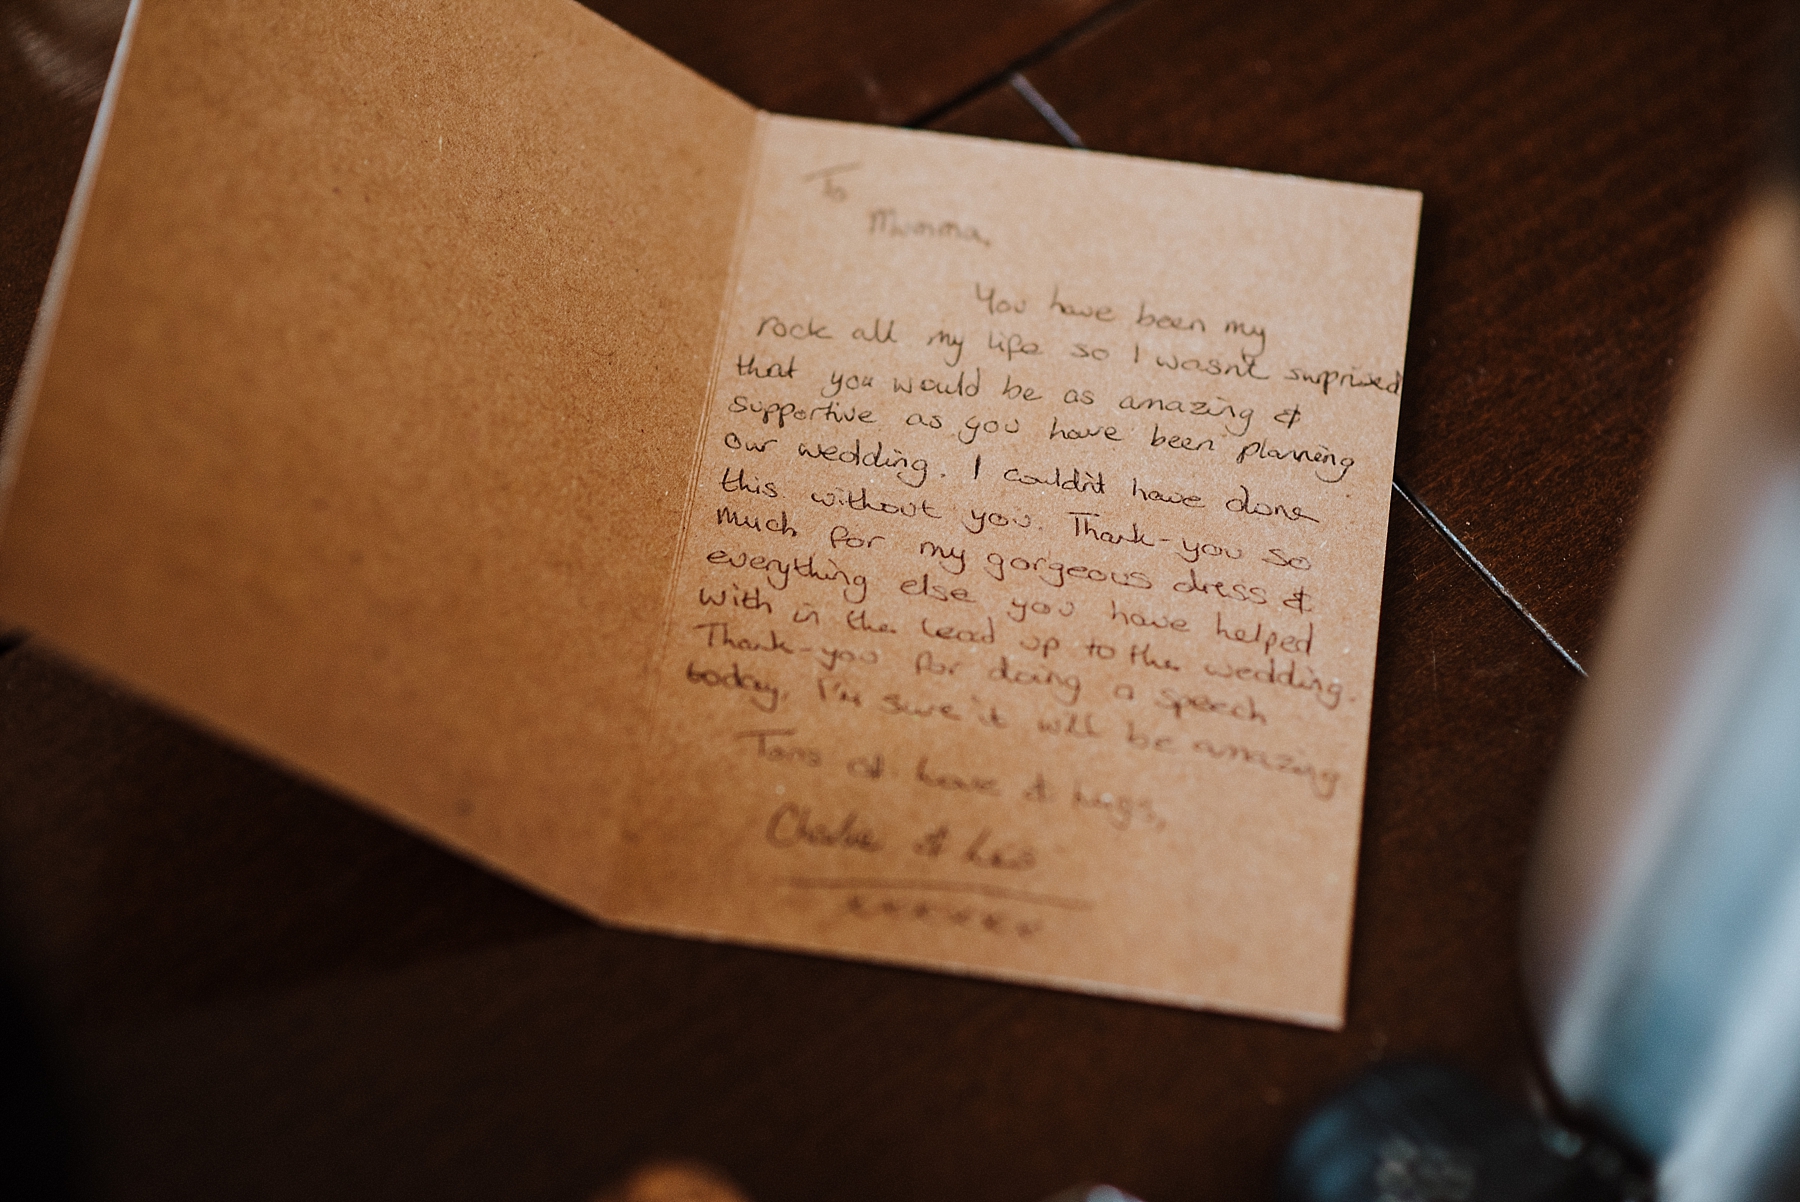 To
Mumma,
You have been my
rock all my life so I wasn't surprised
that you would be as amazing &
supportive as you have been planning
our wedding. I couldn't have done
this without you. Thank-you so
much for my gorgeous dress &
everything else you have helped
with in the lead up to the wedding.
Thank-you for doing a speech
today, I'm sure it will be amazing
Tons of love & hugs,
Charlie &
xxxxxxx